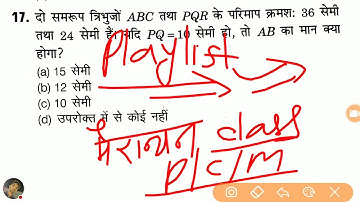 17. दो समरूप त्रिभुजों ABC तथा PQR के परिमाप क्रमशः 36 सेमी
तथा 24 सेमी हैं। यदि PQ = 10 सेमी हो, तो AB का मान क्या
होगा?
Playlist
(a) 15 सेमी
(b) 12 सेमी
(c) 10 सेमी
(d) उपरोक्त में से कोई नहीं
मैराथन class
P/C/M